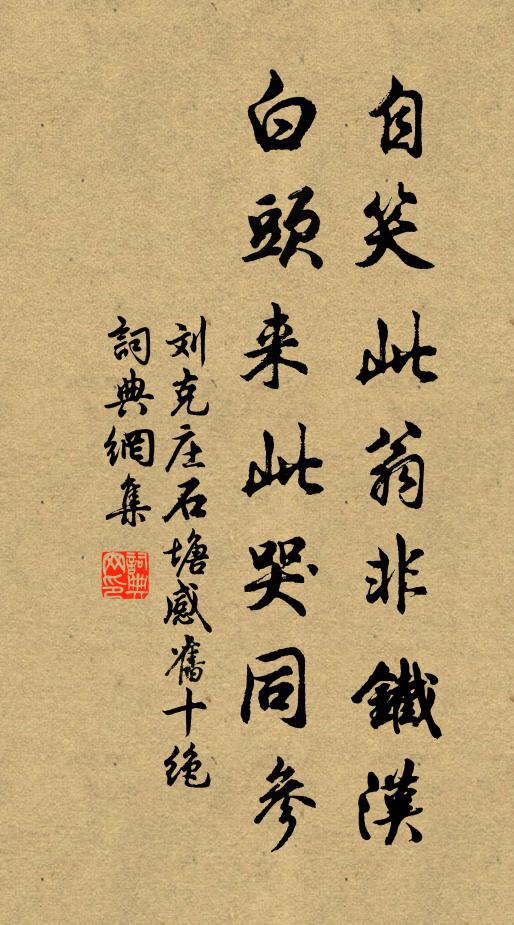 自笑此翁非鐵漢
白頭来此哭同參
刘克庄石塘感舊十絶
詞典網集
詞典网印